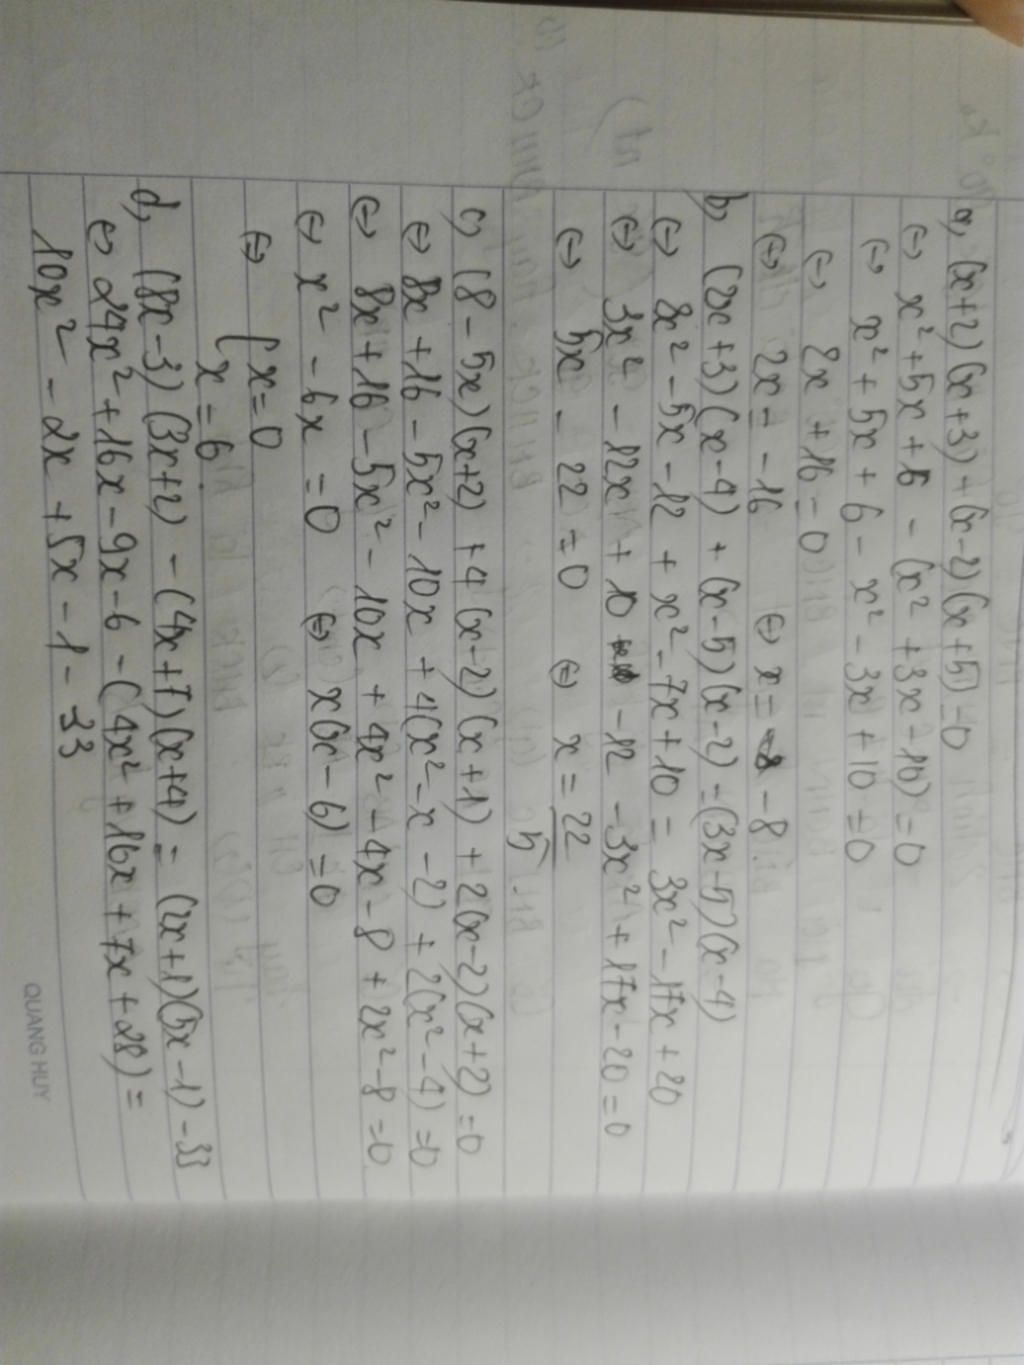 a, (x+2)(x+3) - (x-2)(x+5) = 0
(=) x² + 5x + 6 - (x² + 3x - 10) = 0
(=) x² + 5x + 6 - x² - 3x + 10 = 0
(=) 2x + 16 = 0
(=) 2x = -16 (=) x = -8
b, (2x+3)(x-4) + (x-5)(x-2) = (3x-5)(x-4)
(=) 2x² - 5x - 12 + x² - 7x + 10 = 3x² - 17x + 20
(=) 3x² - 12x + 10 - 12 - 3x² + 17x - 20 = 0
(=) 5x - 22 = 0 (=) x = 22/5
c, (8 - 5x)(x+2) + 4(x-2)(x+1) + 2(x-2)(x+2) = 0
(=) 8x + 16 - 5x² - 10x + 4(x² - x - 2) + 2(x² - 4) = 0
(=) 8x + 16 - 5x² - 10x + 4x² - 4x - 8 + 2x² - 8 = 0
(=) x² - 6x = 0 (=) x(x - 6) = 0
(=) [x = 0
x = 6
d, (8x - 3)(3x+2) - (4x+7)(x+4) = (2x+1)(5x-1) - 33
(=) 24x² + 16x - 9x - 6 - (4x² + 16x + 7x + 28) =
10x² - 2x + 5x - 1 - 33
QUANG HUY